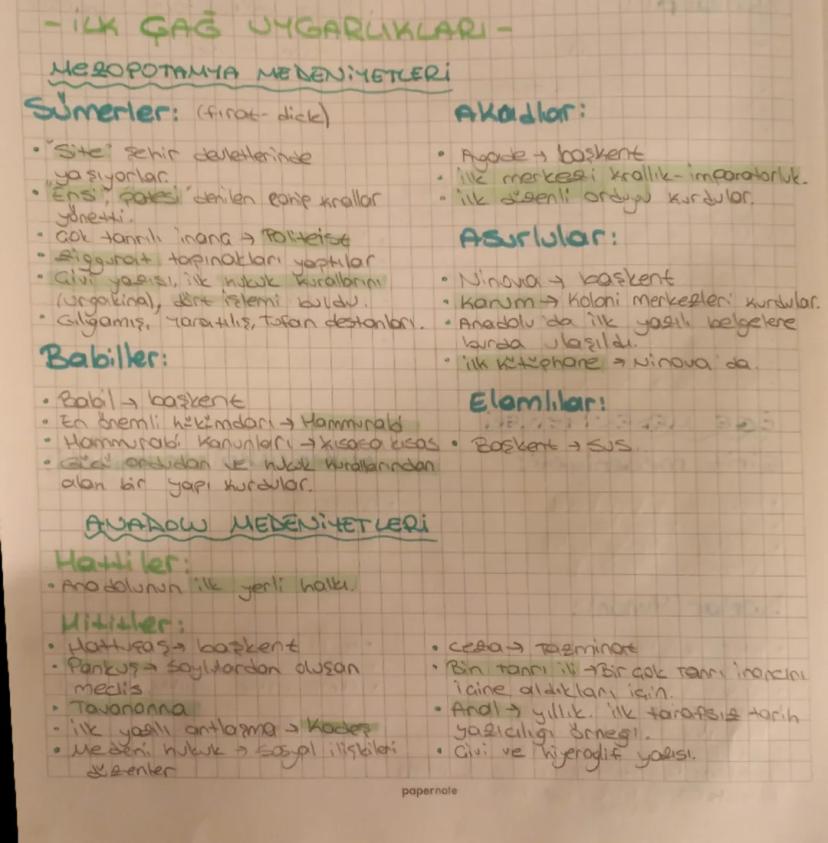 - İLK ÇAĞ UYGARLIKLARI -
MEZOPOTAMYA MEDENİYETLERİ
Sümerler: (fırat-dicle)
• "Site" şehir devletlerinde
yaşıyorlar.
• "Ensi", "patesi" denilen rahip krallar
yönetti.
• Çok tanrılı inanç → Politeist
• Ziggurat tapınakları yaptılar
• Çivi yazısı, ilk hukuk kurallarını
(urgakina), dört işlemi buldu.
• Gılgamış, Yaratılış, Tufan destanları.
Babiller:
• Babil → başkent
• En önemli hükümdarı → Hammurabi
• Hammurabi Kanunları → kısasa kısas
• Gücü ordudan ve hukuk kurallarından
alan bir yapı kurdular.
Akadlar:
• Agade → başkent
• ilk merkezi krallık-imparatorluk.
• ilk düzenli orduyu kurdular.
Asurlular:
• Ninova → başkent
• Karum → Koloni merkezleri kurdular.
• Anadolu'da ilk yazılı belgelere
burda ulaşıldı.
• ilk kütüphane → Ninova'da.
Elamlılar:
• Başkent → SUS
ANADOLU MEDENİYETLERİ
Hattiler:
• Anadolunun ilk yerli halkı.
Hititler:
• Hattuşaş → başkent
• Pankuş → Soylulardan oluşan
meclis
• Tavananna
• ilk yazılı antlaşma → Kadeş
• Medeni hukuk → Sosyal ilişkileri
düzenler
• Ceza → Tazminat
• Bin tanrı ili → Bir çok tanrı inancını
içine aldıkları için.
• Anal → yıllık. ilk tarafsız tarih
yazıcılığı örneği.
• Çivi ve hiyeroglif yazısı.
papernote